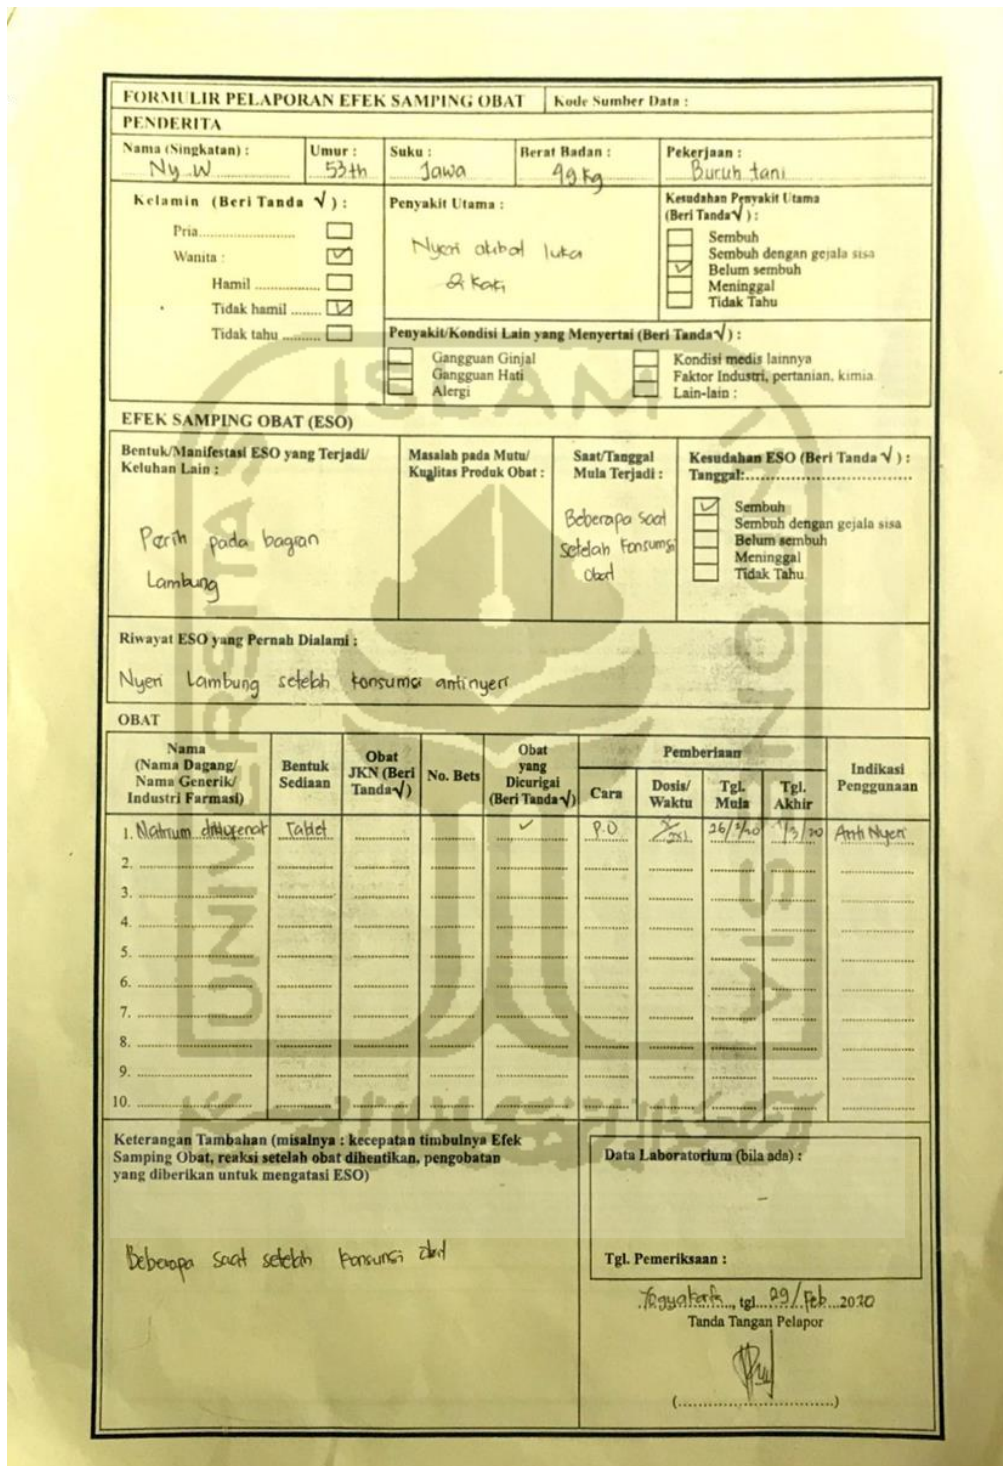 FORMULIR PELAPORAN EFEK SAMPING OBAT Kode Sumber Data :
PENDERITA
Nama (Singkatan) : Umur : Suku : Berat Badan : Pekerjaan :
Ny. W 53 th Jawa 49 kg Buruh tani
Kelamin (Beri Tanda √ ) :
Pria
Wanita :
Hamil
Tidak hamil
Tidak tahu
Penyakit Utama :
Nyeri akibat luka
di kaki
Kesudahan Penyakit Utama
(Beri Tanda √ ) :
Sembuh
Sembuh dengan gejala sisa
Belum sembuh
Meninggal
Tidak Tahu
Penyakit/Kondisi Lain yang Menyertai (Beri Tanda √ ) :
Gangguan Ginjal Kondisi medis lainnya
Gangguan Hati Faktor Industri, pertanian, kimia
Alergi Lain-lain :
EFEK SAMPING OBAT (ESO)
Bentuk/Manifestasi ESO yang Terjadi/
Keluhan Lain :
Perih pada bagian
Lambung
Masalah pada Mutu/
Kualitas Produk Obat :
Saat/Tanggal
Mula Terjadi :
Beberapa saat
setelah konsumsi
obat
Kesudahan ESO (Beri Tanda √ ) :
Tanggal:
Sembuh
Sembuh dengan gejala sisa
Belum sembuh
Meninggal
Tidak Tahu
Riwayat ESO yang Pernah Dialami :
Nyeri Lambung setelah konsumsi antinyeri
OBAT
Nama
(Nama Dagang/
Nama Generik/
Industri Farmasi)
Bentuk
Sediaan
Obat
JKN (Beri
Tanda √)
No. Bets
Obat
yang
Dicurigai
(Beri Tanda √)
Pemberiaan
Cara
Dosis/
Waktu
Tgl.
Mula
Tgl.
Akhir
Indikasi
Penggunaan
1. Natrium diklofenak Tablet ✓ P.O 2x1 Anti Nyeri
2.
3.
4.
5.
6.
7.
8.
9.
10.
Keterangan Tambahan (misalnya : kecepatan timbulnya Efek
Samping Obat, reaksi setelah obat dihentikan, pengobatan
yang diberikan untuk mengatasi ESO)
Beberapa saat setelah konsumsi obat
Data Laboratorium (bila ada) :
-
Tgl. Pemeriksaan :
Yogyakarta, tgl. 29/Feb 2020
Tanda Tangan Pelapor
(..............................)
UNIVERSITAS ISLAM INDONESIA